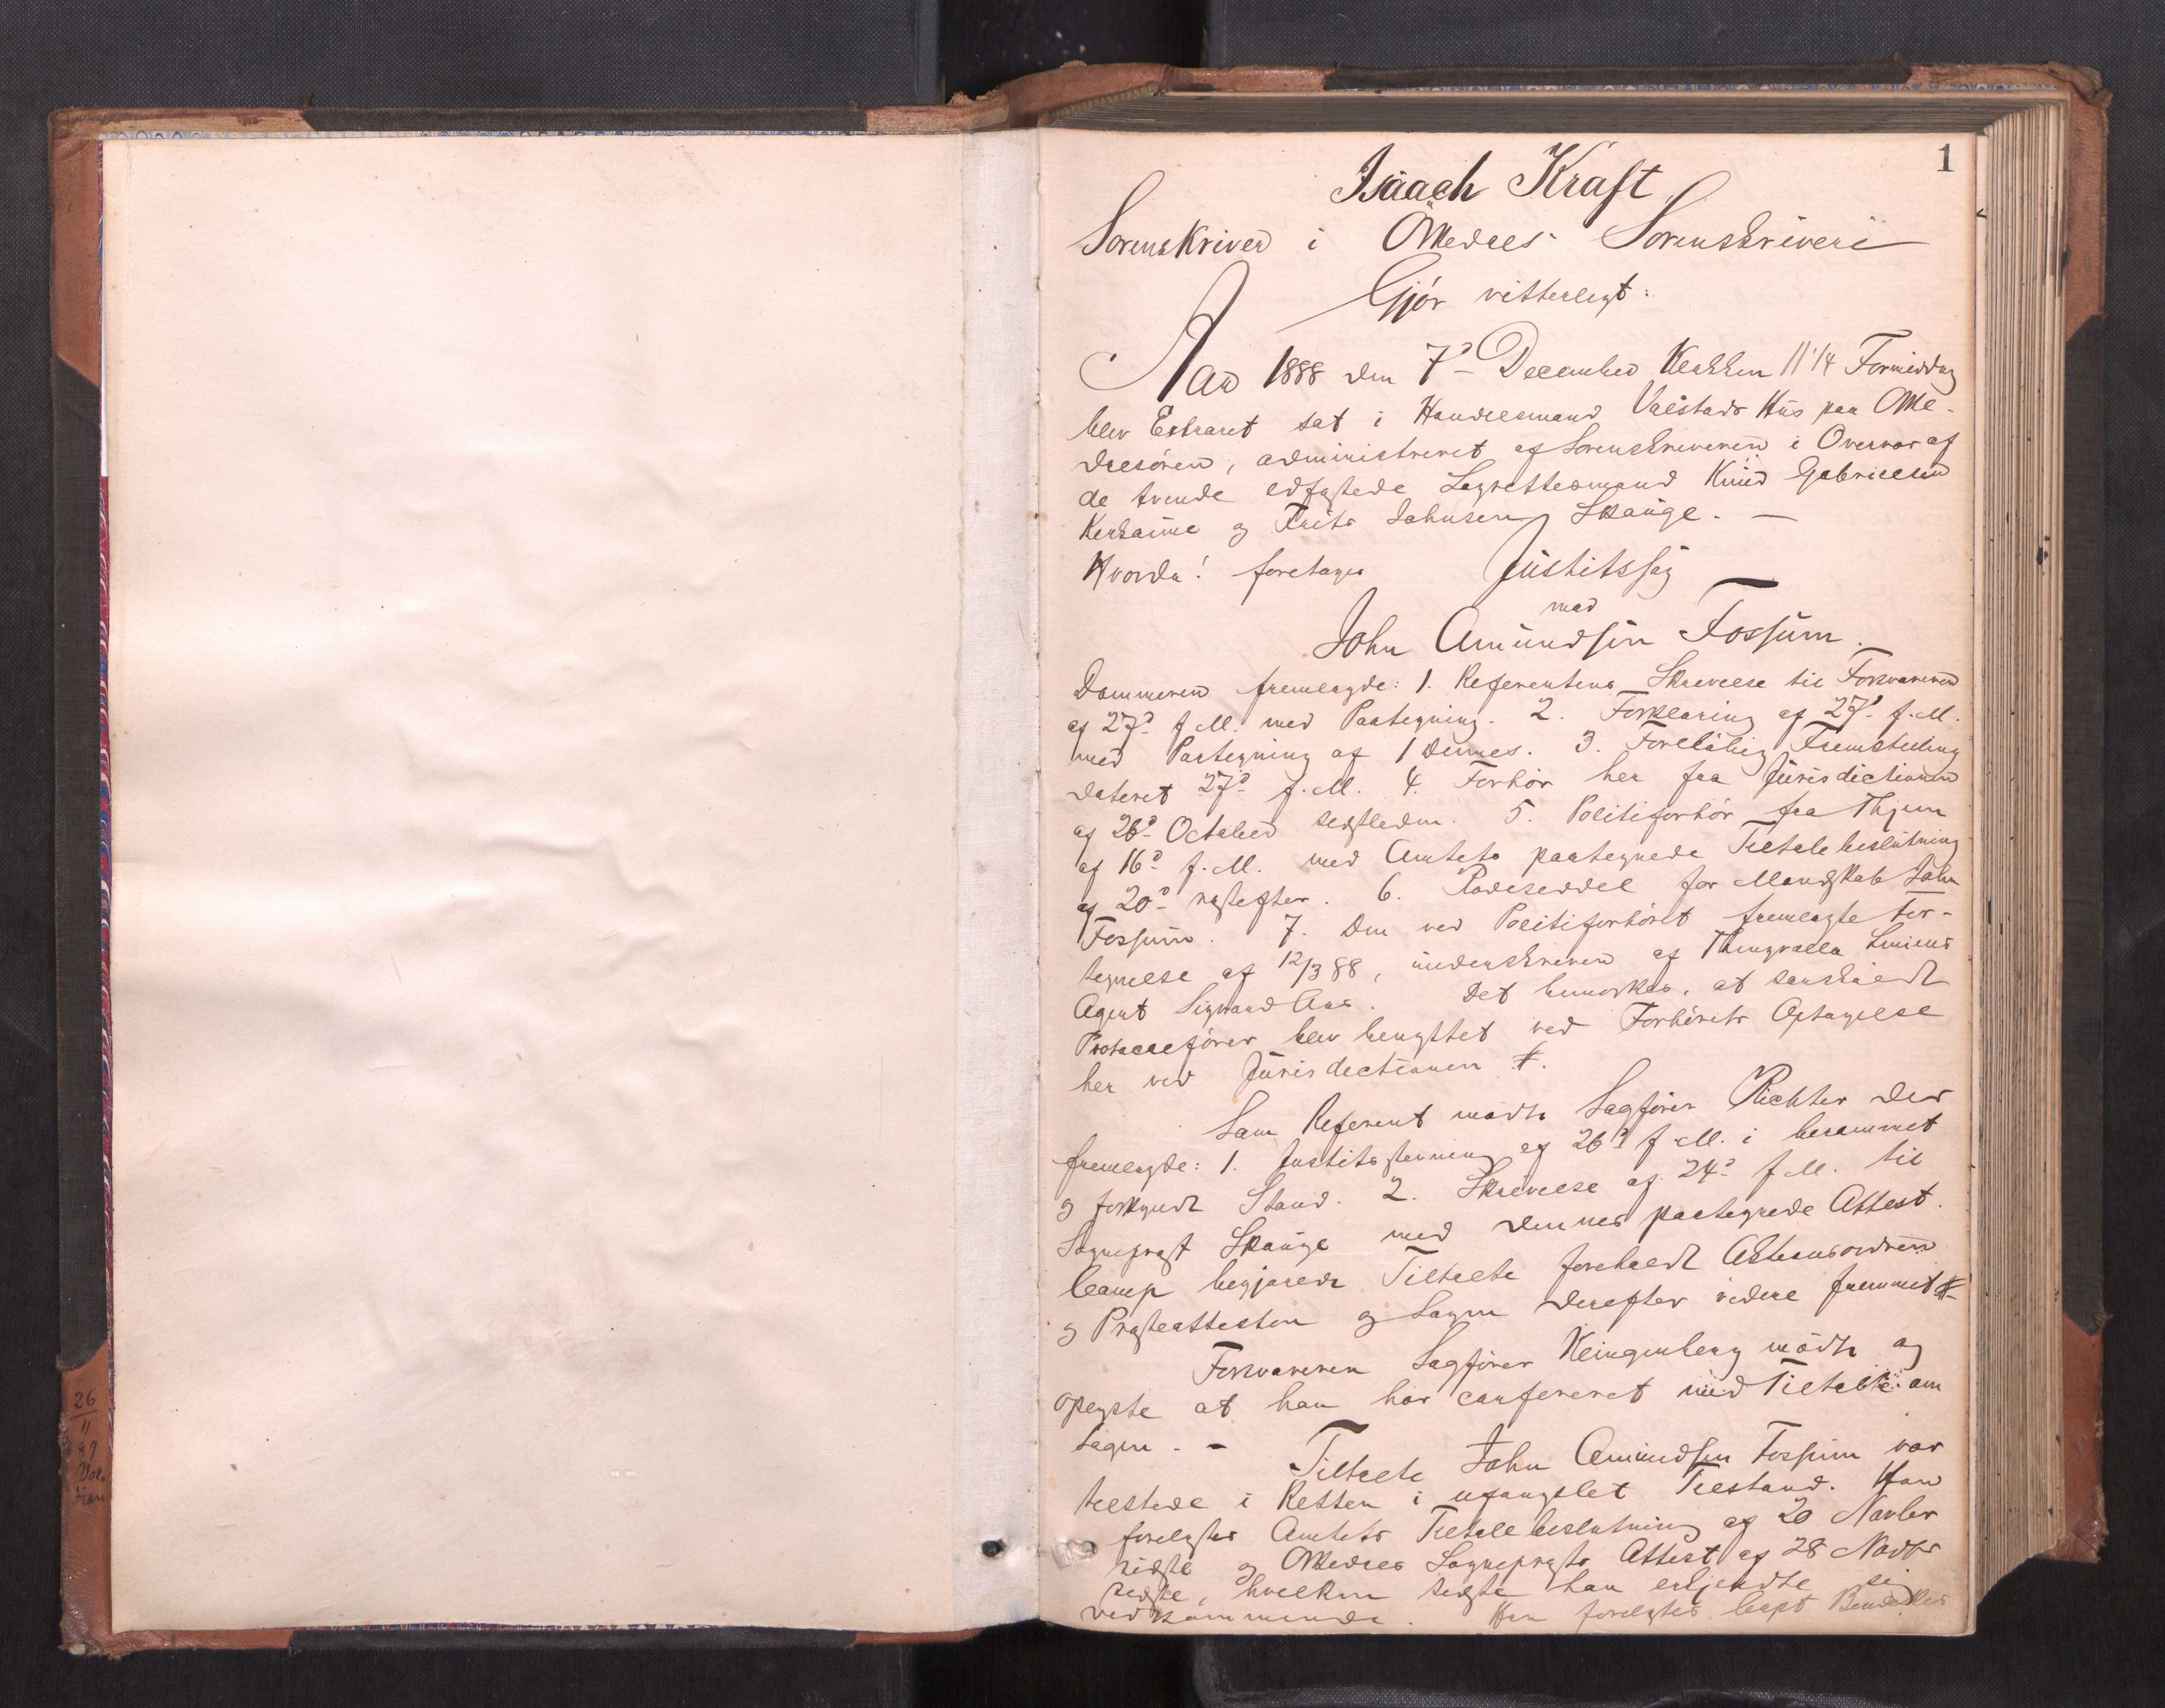 1
Isaach Kraft
Sorenskriver i Opdals Sorenskriveri
Gjør vitterligt:
Aar 1888 den 7de December Klokken 11 1/4 Formiddag
blev Extraret sat i Handelsmand Hus paa
administreret af Sorenskriveren i Overvær af
de tvende edfæstede Lagrettesmænd Knud Gabrielsen
og Frits Johnsen Skauge. —
Hvorda! foretages Justitssag
mod
John Amundsen Fossum.
Dommeren fremlagde: 1. Referentens Skrivelse til Forsvareren
af 27de f. M. med Paategning. 2. Forklaring af 27de f. M.
med Paategning af 1 dennes. 3. Foreløbig Fremstilling
dateret 27de f. M. 4. Forhør her fra Jurisdictionen
af 26de October sidstleden. 5. Politiforhør fra
af 16de f. M. med Amtets paategnede Tiltalebeslutning
af 20de næstefter. 6. Rulleseddel for Mandskab John
Fossum. 7. Den ved Politiforhøret fremlagte For-
tegnelse af 12/3 88, underskreven af Thingvalla Liniens
Agent Sigvard Aas. Det bemærkes, at særskildt
Protocolfører blev benyttet ved Forhørets Optagelse
her ved Jurisdictionen #.
Som Referent mødte Sagfører Richter der
fremlagde: 1. Justitsstevning af 26de f. M. i berammet
og forkyndt Stand. 2. Skrivelse af 24de f. M. til
Sognepræst Skauge med dennes paategnede Attest.
Comp. begjærede Tiltalte foreholdt Actionsordren
og Præsteattesten og Sagen derefter videre fremmet #
Forsvareren Sagfører Klingenberg mødte og
oplyste at han har confereret med Tiltalte om
Sagen. –
Tiltalte John Amundsen Fossum var
tilstede i Retten i ufængslet Tilstand. Han
forelæstes Amtets Tiltalebeslutning af 20 Novbr
sidste og Sognepræsts Attest af 28 Novbr
sidste, hvilken sidste han erkjendte sig
vedkommende. Han forelæstes
26
11
89